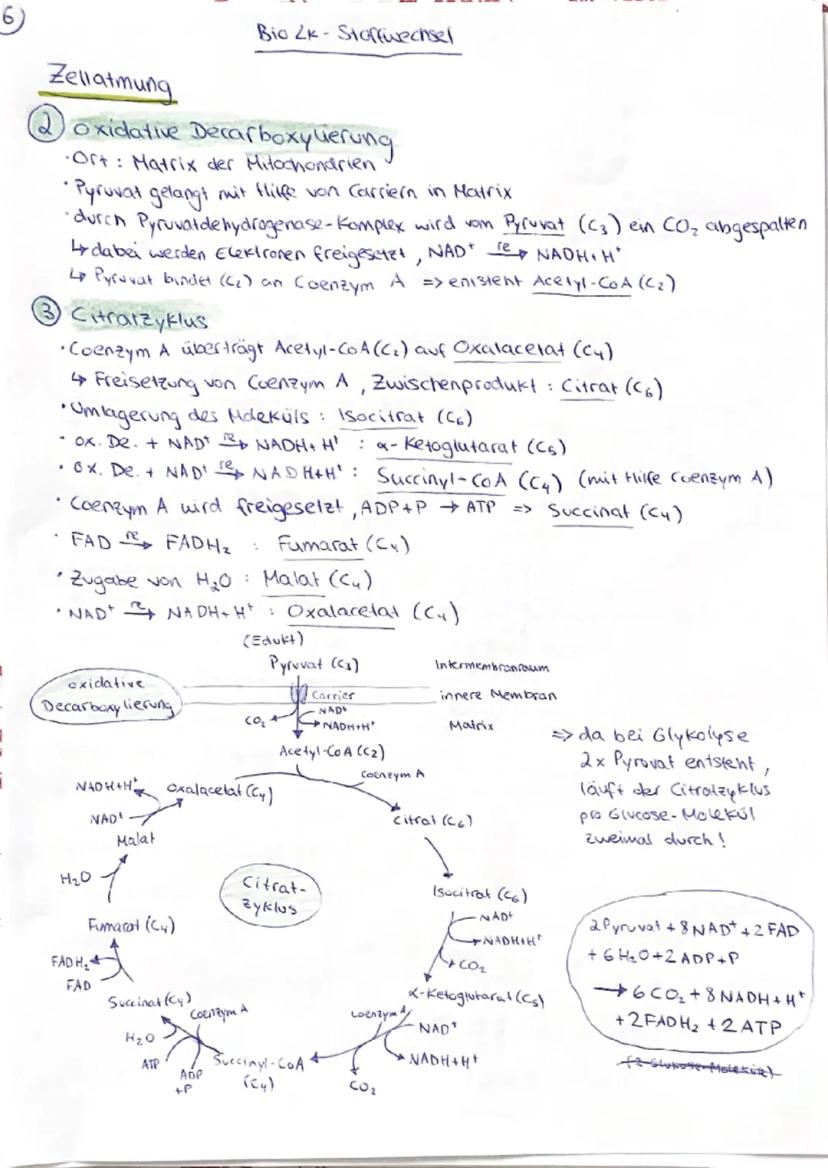 6
Bio LK - Stoffwechsel
Zellatmung
② oxidative Decarboxylierung
· Ort : Matrix der Mitochondrien
· Pyruvat gelangt mit Hilfe von Carriern in Matrix
· durch Pyruvatdehydrogenase-Komplex wird vom Pyruvat (C₃) ein CO₂ abgespalten
↳ dabei werden Elektronen freigesetzt, NAD⁺ re→ NADH+H⁺
↳ Pyruvat bindet (C₂) an Coenzym A => entsteht Acetyl-CoA (C₂)
③ Citratzyklus
· Coenzym A überträgt Acetyl-CoA (C₂) auf Oxalacetat (C₄)
↳ Freisetzung von Coenzym A, Zwischenprodukt : Citrat (C₆)
· Umlagerung des Moleküls : Isocitrat (C₆)
· ox. De. + NAD⁺ re→ NADH+H⁺ : α-Ketoglutarat (C₅)
· ox. De. + NAD⁺ re→ NADH+H⁺ : Succinyl-CoA (C₄) (mit Hilfe Coenzym A)
· Coenzym A wird freigesetzt, ADP+P → ATP => Succinat (C₄)
· FAD re→ FADH₂ : Fumarat (C₄)
· Zugabe von H₂O : Malat (C₄)
· NAD⁺ re→ NADH+H⁺ : Oxalacetat (C₄)
(Edukt)
Pyruvat (C₃)
Intermembranraum
oxidative
Decarboxylierung
Carrier
innere Membran
CO₂
NAD⁺
NADH+H⁺
Matrix
Acetyl-CoA (C₂)
Coenzym A
=> da bei Glykolyse
2x Pyruvat entsteht,
läuft der Citratzyklus
pro Glucose-Molekül
zweimal durch!
NADH+H⁺
Oxalacetat (C₄)
NAD⁺
Citrat (C₆)
Malat
H₂O
Citrat-
zyklus
Isocitrat (C₆)
NAD⁺
NADH+H⁺
CO₂
Fumarat (C₄)
FADH₂
FAD
α-Ketoglutarat (C₅)
Succinat (C₄)
Coenzym A
Coenzym A
NAD⁺
NADH+H⁺
H₂O
ATP
ADP
+P
Succinyl-CoA
(C₄)
CO₂
2 Pyruvat + 8 NAD⁺ + 2 FAD
+ 6 H₂O + 2 ADP+P
→ 6 CO₂ + 8 NADH+H⁺
+ 2 FADH₂ + 2 ATP
(2 Glukose-Moleküle)